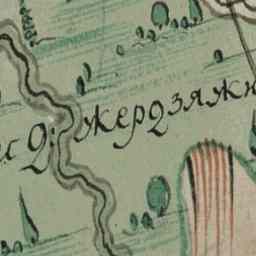 с д: жердзяжк